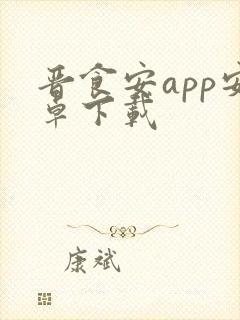 晋食安app安
卓下载
康斌